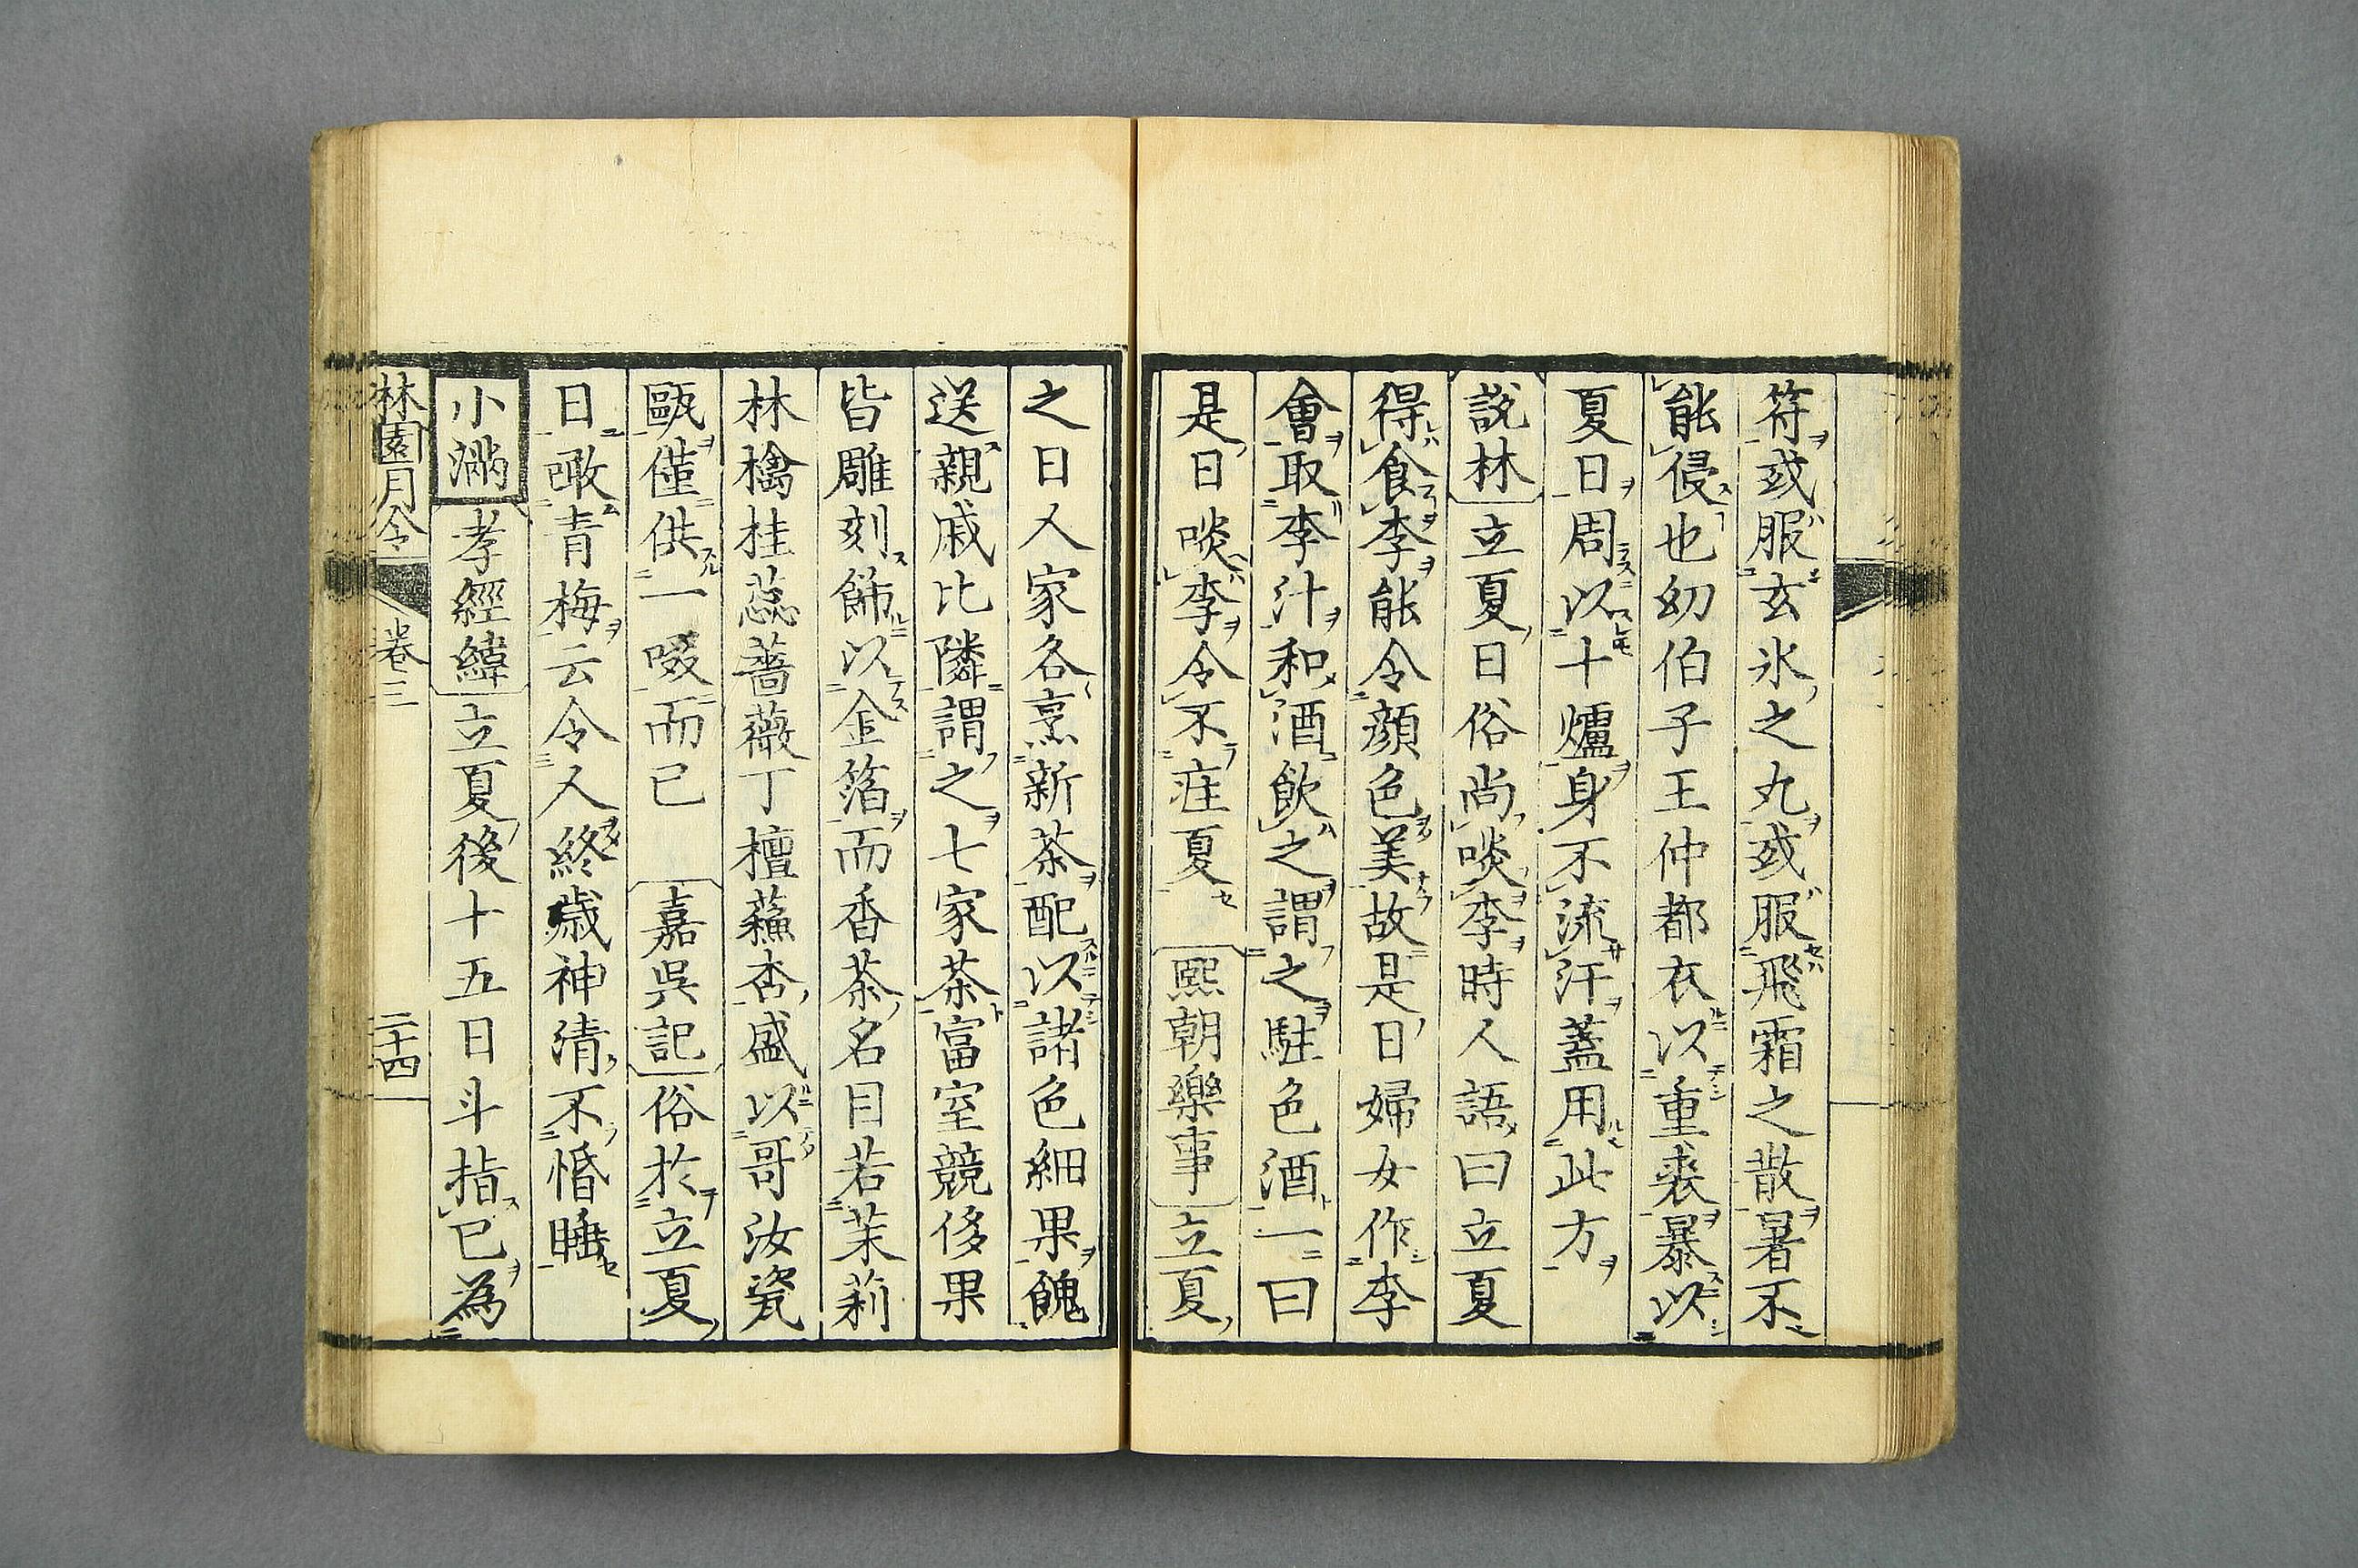 符或服玄氷之丸或服飛霜之散暑不
能侵也幼伯子王仲都衣以重裘暴以
夏日周以十爐身不流汗蓋用此方
說林立夏日俗尚啖李時人語曰立夏
得食李能令顔色美故是日婦女作李
會取李汁和酒飲之謂之駐色酒一曰
是日啖李令不疰夏熙朝樂事立夏
之日人家各烹新茶配以諸色細果餽
送親戚比隣謂之七家茶富室競侈果
皆雕刻飾以金箔而香茶名目若茉莉
林檎桂蕊薔薇丁檀蘇杏盛以哥汝瓷
甌僅供一啜而已嘉吳記俗於立夏
日噉青梅云令人終歳神清不惛睡
小滿孝經緯立夏後十五日斗指巳為
林園月令 卷三 二十四